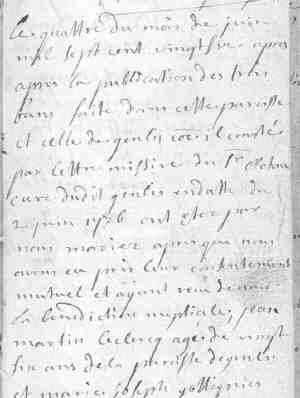 le quattre du mois de juin
mil sept cent vingt six apres
apres la publication des trois
bans faite dans cette paroisse
et celle de genlis coe il conste
par lettre missive du Sr
curé dudit genlis en datte du
2 juin 1726 ont eté par
nous mariez apres que nous
avons eu pris leur consentement
mutuel et ayant receu de nous
la benediction nuptiale, jean
martin leclercq agé de vingt
six ans de la paroisse de genlis
et marie joseph gottignies